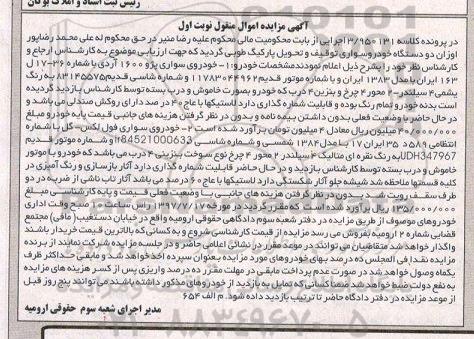 رئیس ثبت اسناد و املاک بوکان
آگهی مزایده اموال منقول نوبت اول
در پرونده کلاسه 950131/3/اجرایی از بابت محکومیت مالی محکوم علیه رضا منیر در حق محکوم له علی محمد رضاپور
اوزان دو دستگاه خودرو سواری توقیف و تحویل پارکینگ طوبی گردید که جهت ارزیابی موضوع به کارشناس ارجاع و
کارشناس نظر خود را بشرح ذیل اعلام نمودند مشخصات خودرو: 1- خودروی سواری پژو 1600 آردی با شماره 360-17 ل
163 ایران با مدل 1383 ایران و با شماره موتور قدیم 11783044962 و شماره شاسی قدیم 83145575 به رنگ
یشمی 4 سیلندر - 2 محور 4 چرخ و بنزین 4 درب که خودرو بصورت خاموش و درب بسته توسط کارشناس بازدید گردیده
است بدنه خودرو تمام رنگ بوده و قابلیت شماره گذاری دارد لاستیکها با عاج 40 در صد دارای روکش صندلی می باشد و
در حال حاضر با وضعیت فعلی بدون داشتن بیمه نامه و بدون در نظر گرفتن هزینه های جانبی قیمت پایه خودرو مبلغ
40/000/000 میلیون ریال معادل 4 میلیون تومان برآورد شده است 2- خودروی سواری فول لکس - گل با شماره
انتظامی 589 د 35 ایران 17 با مدل 1384 شمسی و شماره شاسی Ir84521000633 و شماره موتور قدیم
UDH347967 به رنگ نقره ای متالیک 4 سیلندر 2 محور 4 چرخ نوع سوخت بنزینی 4 درب می باشد که خودرو با موتور
خاموش و درب بسته توسط کارشناس بازدید و در حال حاضر قابلیت شماره گذاری دارد آثار بازسازی و رنگ آمیزی در
کلیه قسمتها ملاحظه شد شیشه جلو آثار شکستگی دارد لاستیکها با عاج 60 در صد می باشد آثار تاب ناشی از ضربه در دو
طرف سقف رویت گردید بدون در نظر گرفتن هزینه های جانبی با وضعیت فعلی قیمت و پایه کارشناسی مبلغ
135/000/000 ریال برآورد شده است که مقرر گردید در مورخه 1397/7/17 راس ساعت 10 صبح وقت اداری
خودروهای موصوف از طریق مزایده در دفتر شعبه سوم دادگاهی حقوقی ارومیه واقع در خیابان دستغیب (مافی) مجتمع
قضایی شماره 2 ارومیه بفروش می رسد مزایده از قیمت کارشناسی شروع و به کسانی که بالاترین قیمت خریدار باشند
واگذار خواهد شد متقاضیان می توانند در موعد مقرر در نشانی اعلامی حاضر و در جلسه مزایده شرکت نمایند از برنده
مزایده نقدا فی المجلس ده درصد بهای خودروهای مورد مزایده بعنوان سپرده اخذ خواهد شد و مابقی حداکثر ظرف
یکماه وصول خواهد شد در صورت عدم پرداخت مابقی در مهلت مقرر ده در صد واریزی پس از کسر هزینه های مزایده
به نفع دولت ضبط خواهد شد ضمنا کسانی که تمایل به بازدید از خودروهای مذکور داشته باشند می توانند پنج روز قبل
از موعد مزایده در دفتر دادگاه حاضر تا ترتیب بازدید داده شود. م الف 654
مدیر اجرای شعبه سوم حقوقی ارومیه